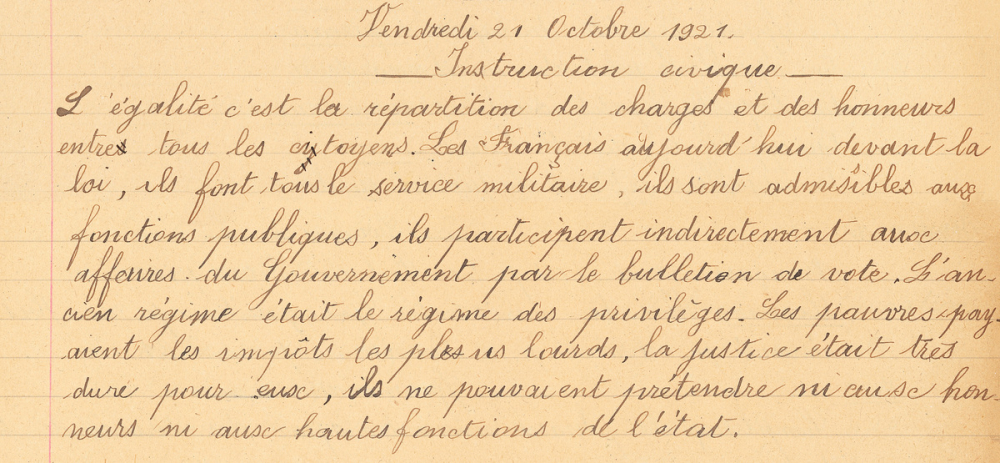 Vendredi 21 Octobre 1921.
Instruction civique
L'égalité c'est la répartition des charges et des honneurs
entre tous les citoyens. Les Français aujourd'hui devant la
loi, ils font tous le service militaire, ils sont admisibles aux
fonctions publiques, ils participent indirectement aux
affeires du Gouvernement par le bulletion de vote. L'an-
cien régime était le régime des privilèges. Les pauvres pay-
aient les impôts les plus lourds, la justice était très
dure pour eux, ils ne pouvaient prétendre ni aux hon-
neurs ni aux hautes fonctions de l'état.